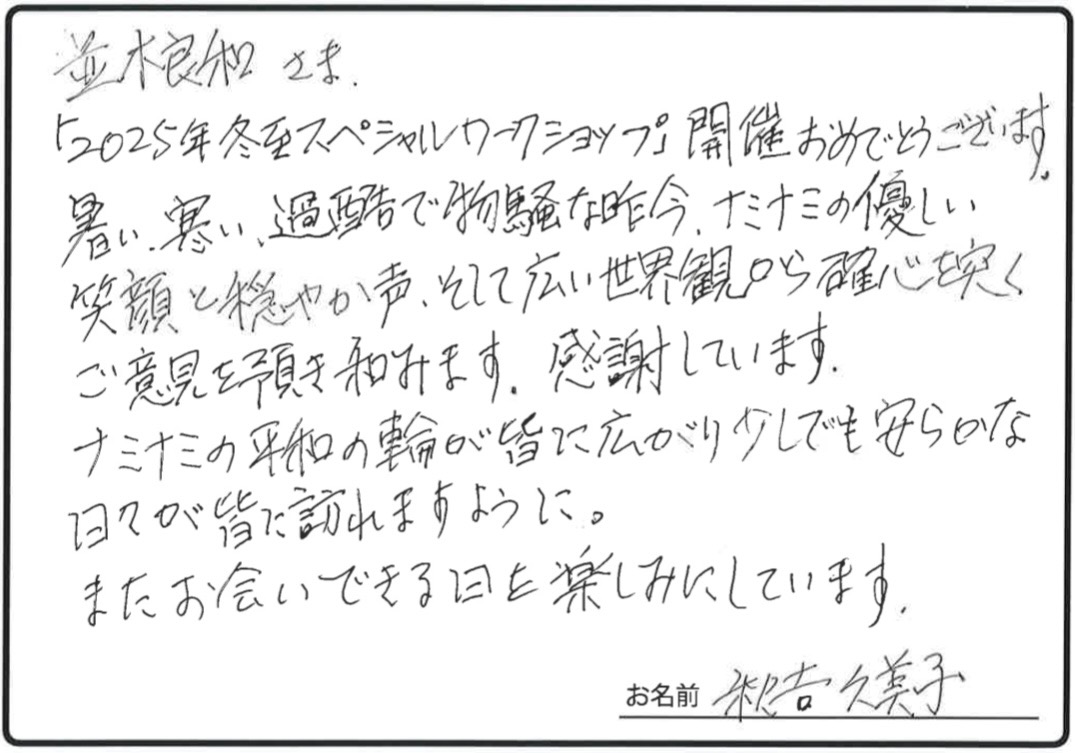 並木良和 さま.
「2025年冬至スペシャルワークショップ」開催おめでとうございます.
暑い、寒い、過酷で物騒な昨今、ナミナミの優しい
笑顔と穏やか声、そして広い世界観から確心を突く
ご意見を預き和みます. 感謝しています.
ナミナミの平和の輪が皆に広がり少しでも安らかな
日々が皆に訪れますように。
またお会いできる日を楽しみにしています.
お名前 秋吉久美子